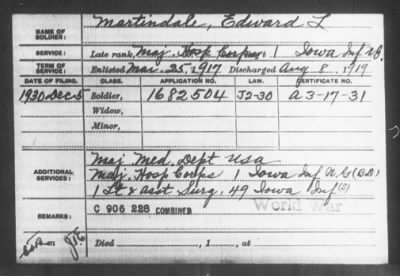 NAME OF SOLDIER: Martindale, Edward L
SERVICE: Late rank, Maj. Hosp Corps 1 Iowa Inf N.G.
TERM OF SERVICE: Enlisted Mar. 25, 1917 Discharged Aug 8, 1919
DATE OF FILING. CLASS. APPLICATION NO. LAW. CERTIFICATE NO.
1930 Dec 5 Soldier, 1682504 J2-30 A 3-17-31
Widow,
Minor,
Maj Med. Dept USA
ADDITIONAL SERVICES: Maj. Hosp Corps 1 Iowa Inf N.G.
1 Lt & Asst Surg. 49 Iowa Inf (S)
World War
REMARKS: C 906 228 COMBINED
Died , 1 , at